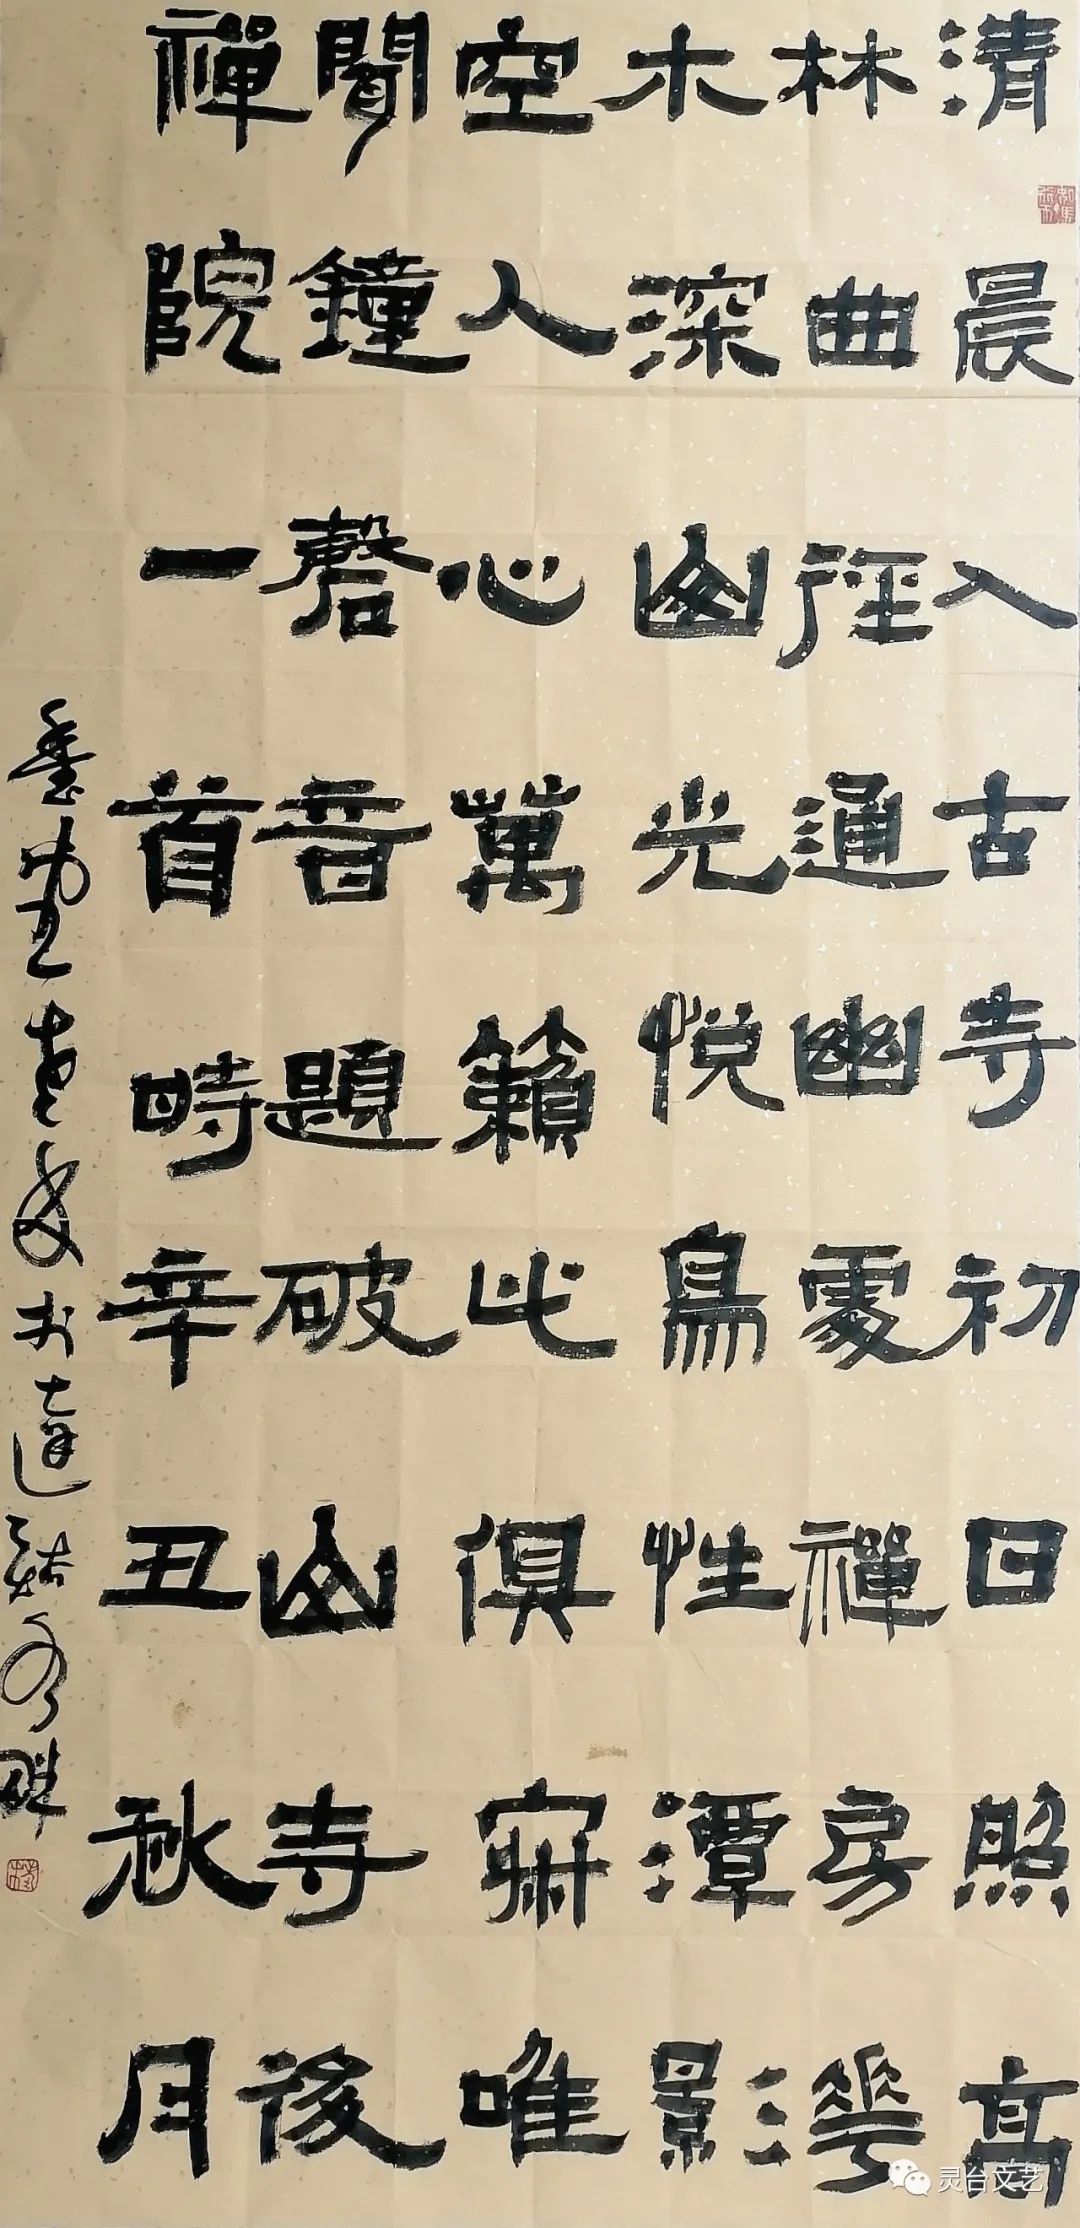 清晨入古寺初日照高
林曲徑通幽處禪房華
木深山光悅鳥性潭影
空人心萬籟此俱寂唯
聞鐘磬音題破山寺後
禪院一首時辛丑秋月
灵台文艺